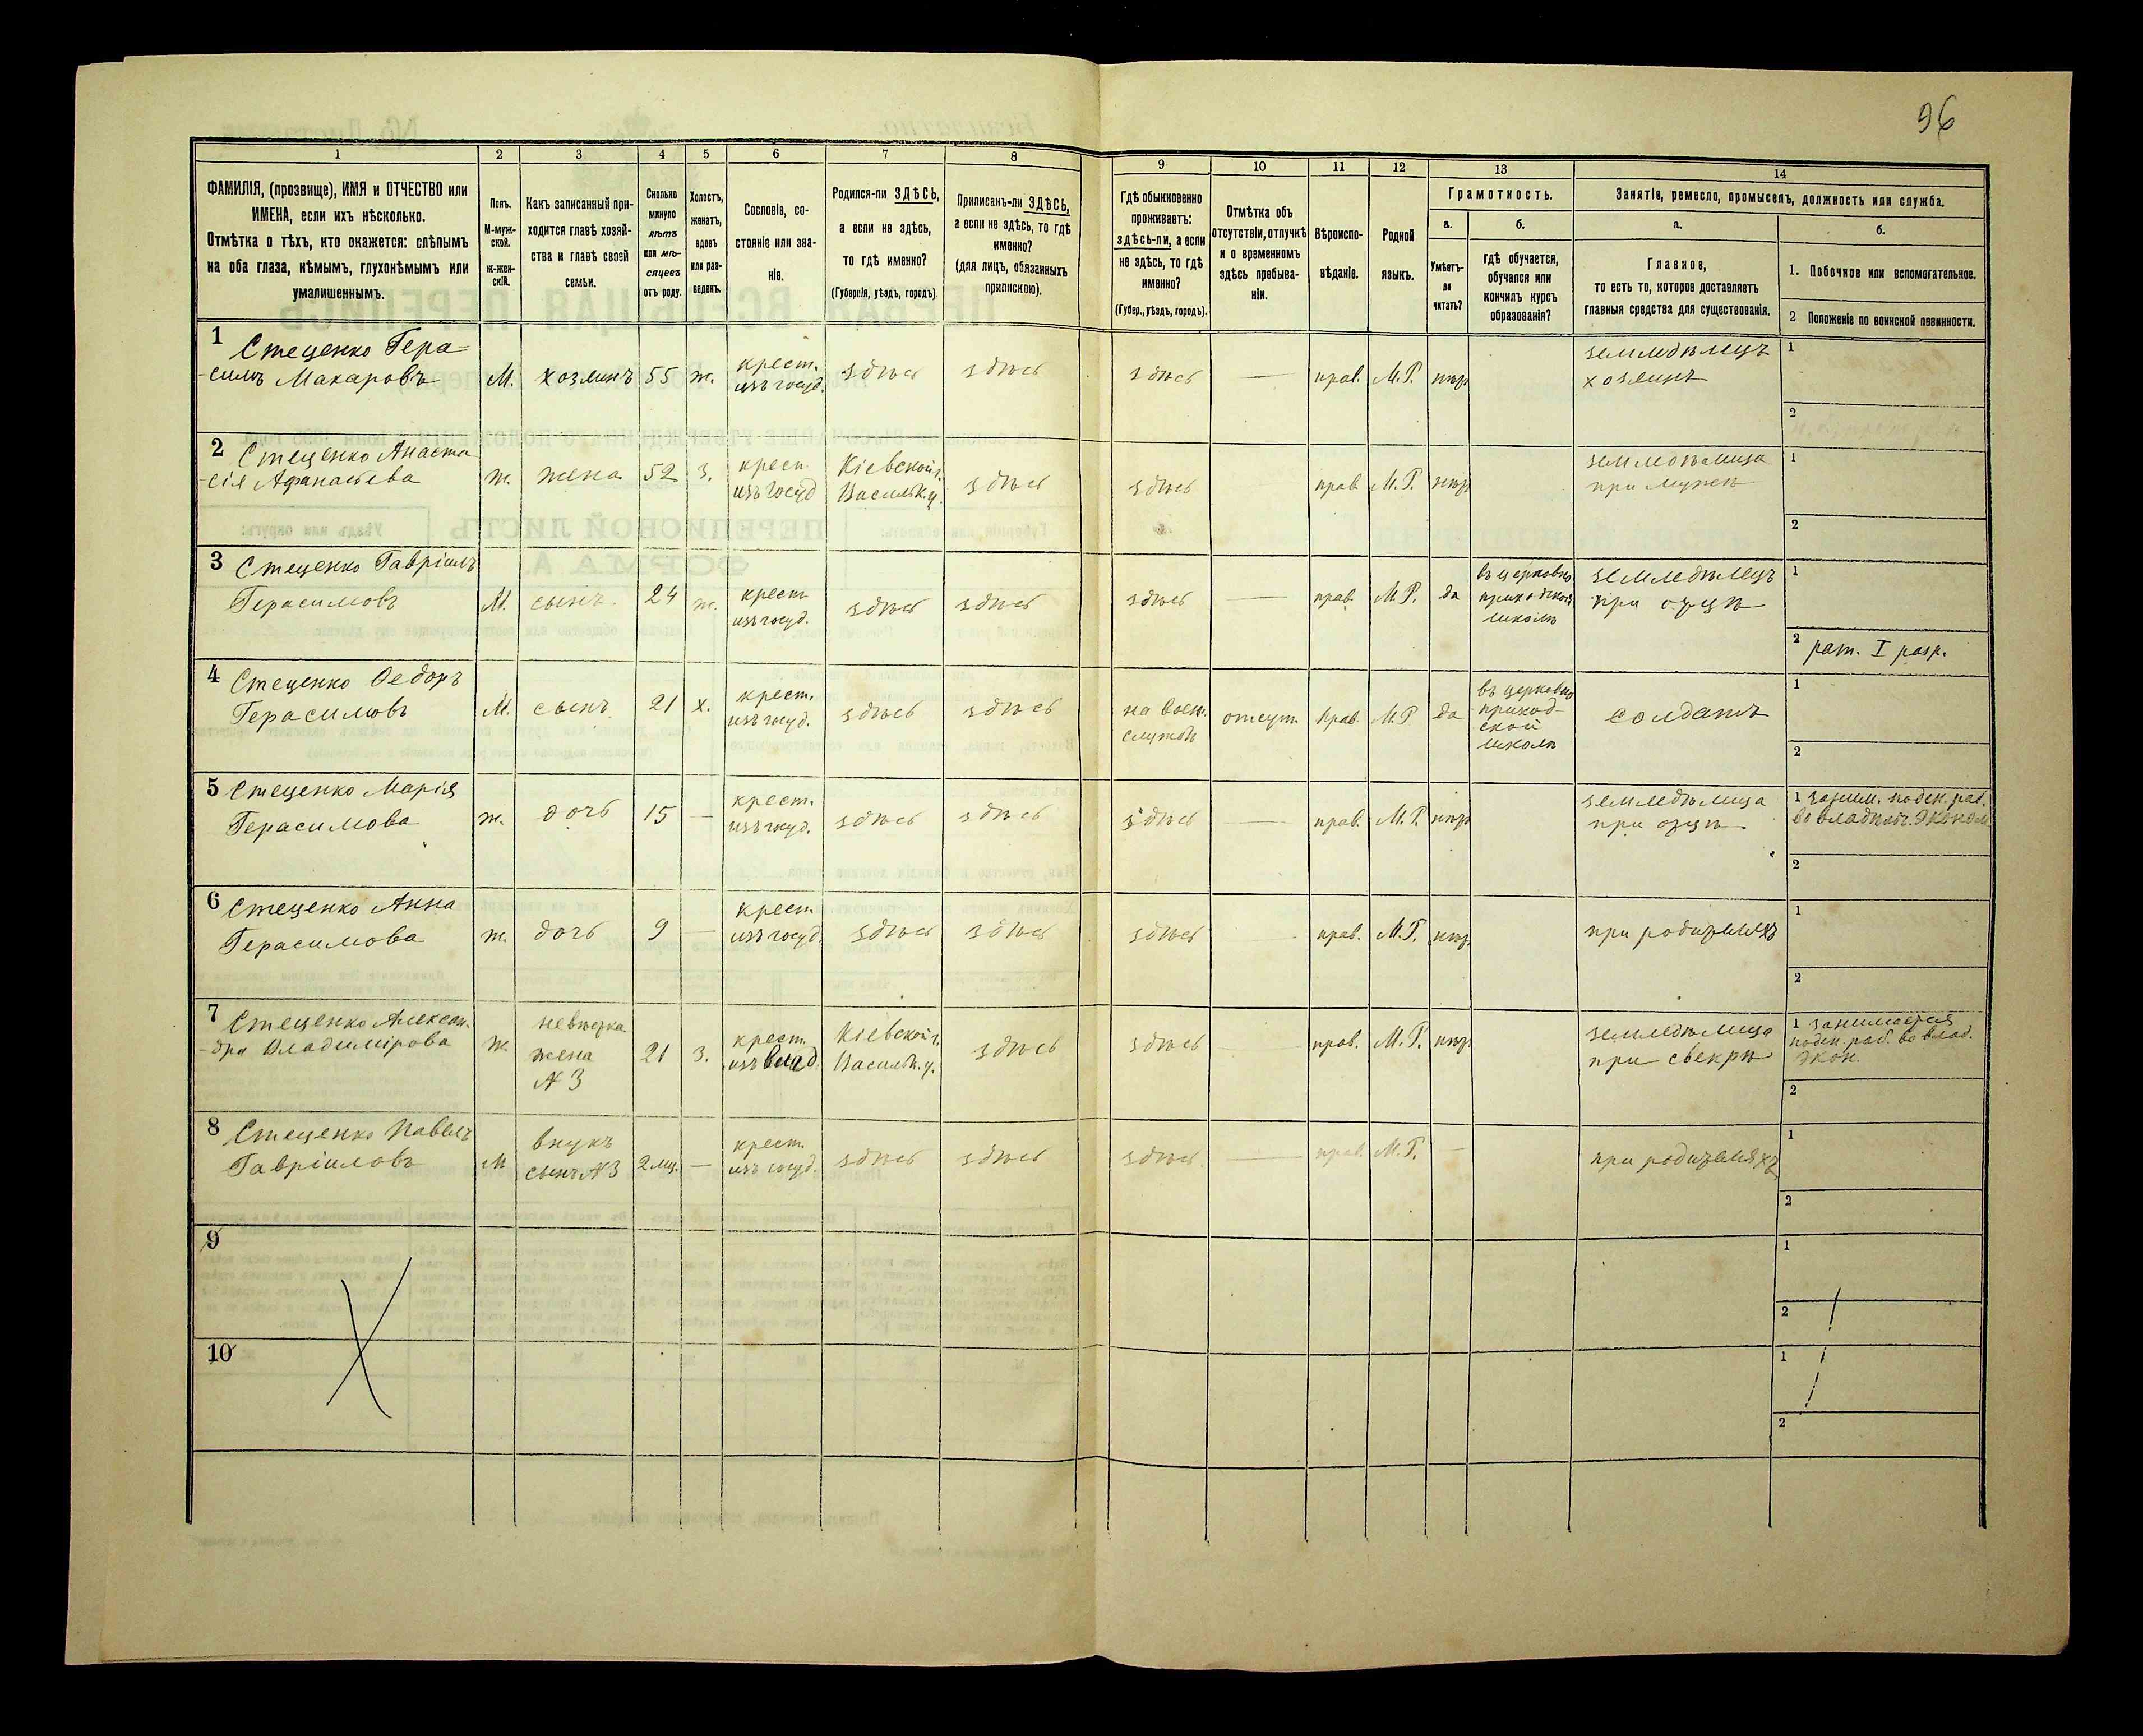 96
1 2 3 4 5 6 7 8 9 10 11 12 13 14
ФАМИЛІЯ, (прозвище), ИМЯ и ОТЧЕСТВО или
ИМЕНА, если ихъ нѣсколько.
Отмѣтка о тѣхъ, кто окажется: слѣпымъ
на оба глаза, нѣмымъ, глухонѣмымъ или
умалишеннымъ.
Полъ.
М-муж-
ской.
ж-жен-
скій.
Какъ записанный при-
ходится главѣ хозяй-
ства и главѣ своей
семьи.
Сколько
минуло
лѣтъ
или мѣ-
сяцевъ
отъ роду.
Холостъ,
женатъ,
вдовъ
или раз-
веденъ.
Сословіе, со-
стояніе или зва-
ніе.
Родился-ли ЗДѢСЬ,
а если не здѣсь,
то гдѣ именно?
(Губернія, уѣздъ, городъ).
Приписанъ-ли ЗДѢСЬ,
а если не здѣсь, то гдѣ
именно?
(для лицъ, обязанныхъ
припискою).
Гдѣ обыкновенно
проживаетъ:
здѣсь-ли, а если
не здѣсь, то гдѣ
именно?
(Губер., уѣздъ, городъ).
Отмѣтка объ
отсутствіи, отлучкѣ
и о временномъ
здѣсь пребыва-
ніи.
Вѣроиспо-
вѣданіе.
Родной
языкъ.
Грамотность.
а.
Умѣетъ-
ли
читать?
б.
гдѣ обучается,
обучался или
кончилъ курсъ
образованія?
Занятіе, ремесло, промыселъ, должность или служба.
а.
Главное,
то есть то, которое доставляетъ
главныя средства для существованія.
б.
1. Побочное или вспомогательное.
2 Положеніе по воинской повинности.
1 Стеценко Гера-
-симъ Макаровъ
М.
хозяинъ
55
ж.
крест.
изъ госуд.
здѣсь
здѣсь
здѣсь
—
прав.
М.Р.
нѣтъ
земледѣлецъ
хозяинъ
1
2
2 Стеценко Анаста
-сія Афанасьева
ж.
жена
52
з.
крест.
изъ госуд
Кіевской г.
Васильк. у.
здѣсь
здѣсь
прав.
М.Р.
нѣтъ
земледѣлица
при мужѣ
1
2
3 Стеценко Гавріилъ
Герасимовъ
М.
сынъ.
24
ж.
крест.
изъ госуд.
здѣсь
здѣсь
здѣсь
—
прав.
М.Р.
да
въ церковно
приходской
школѣ
земледѣлецъ
при отцѣ
1
2 рат. I разр.
4 Стеценко Ѳедоръ
Герасимовъ
М.
сынъ
21
х.
крест.
изъ госуд.
здѣсь
здѣсь
на воен.
службѣ
отсут.
прав.
М.Р
да
въ церковно
приход-
ской
школѣ
солдатъ
1
2
5 Стеценко Марія
Герасимова
ж.
дочь
15
—
крест.
изъ госуд.
здѣсь
здѣсь
здѣсь
—
прав.
М.Р.
нѣтъ
земледѣлица
при отцѣ
1 заним. поден. раб.
во владѣльч. эконом
2
6 Стеценко Анна
Герасимова
ж.
дочь
9
—
крест.
изъ госуд.
здѣсь
здѣсь
здѣсь
—
прав.
М.Р.
нѣтъ
при родителяхъ
1
2
7 Стеценко Алексан-
-дра Владимірова
ж
невѣстка
жена
№ 3
21
з.
крест.
изъ влад.
Кіевской г.
Васильк. у.
здѣсь
здѣсь
—
прав.
М.Р.
нѣтъ
земледѣлица
при свекрѣ
1 занимается
поден. раб. во влад.
экон.
2
8 Стеценко Павелъ
Гавріиловъ
М
внукъ
сынъ № 3
2 мц.
—
крест.
изъ госуд.
здѣсь
здѣсь
здѣсь
—
прав.
М.Р.
—
при родителяхъ
1
2
9
1
2
10
1
2